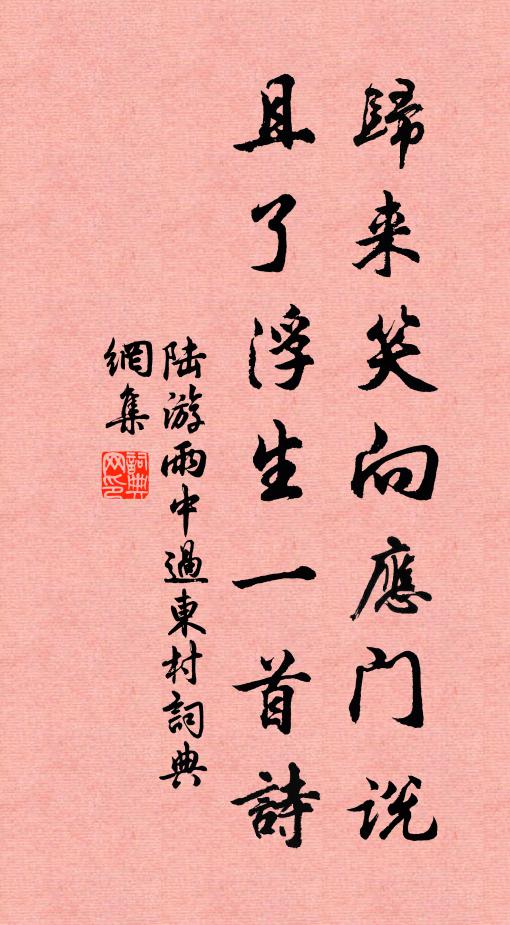 歸来笑向應門説
且了浮生一首詩
陆游雨中過東村詞典
網集
詞典網印